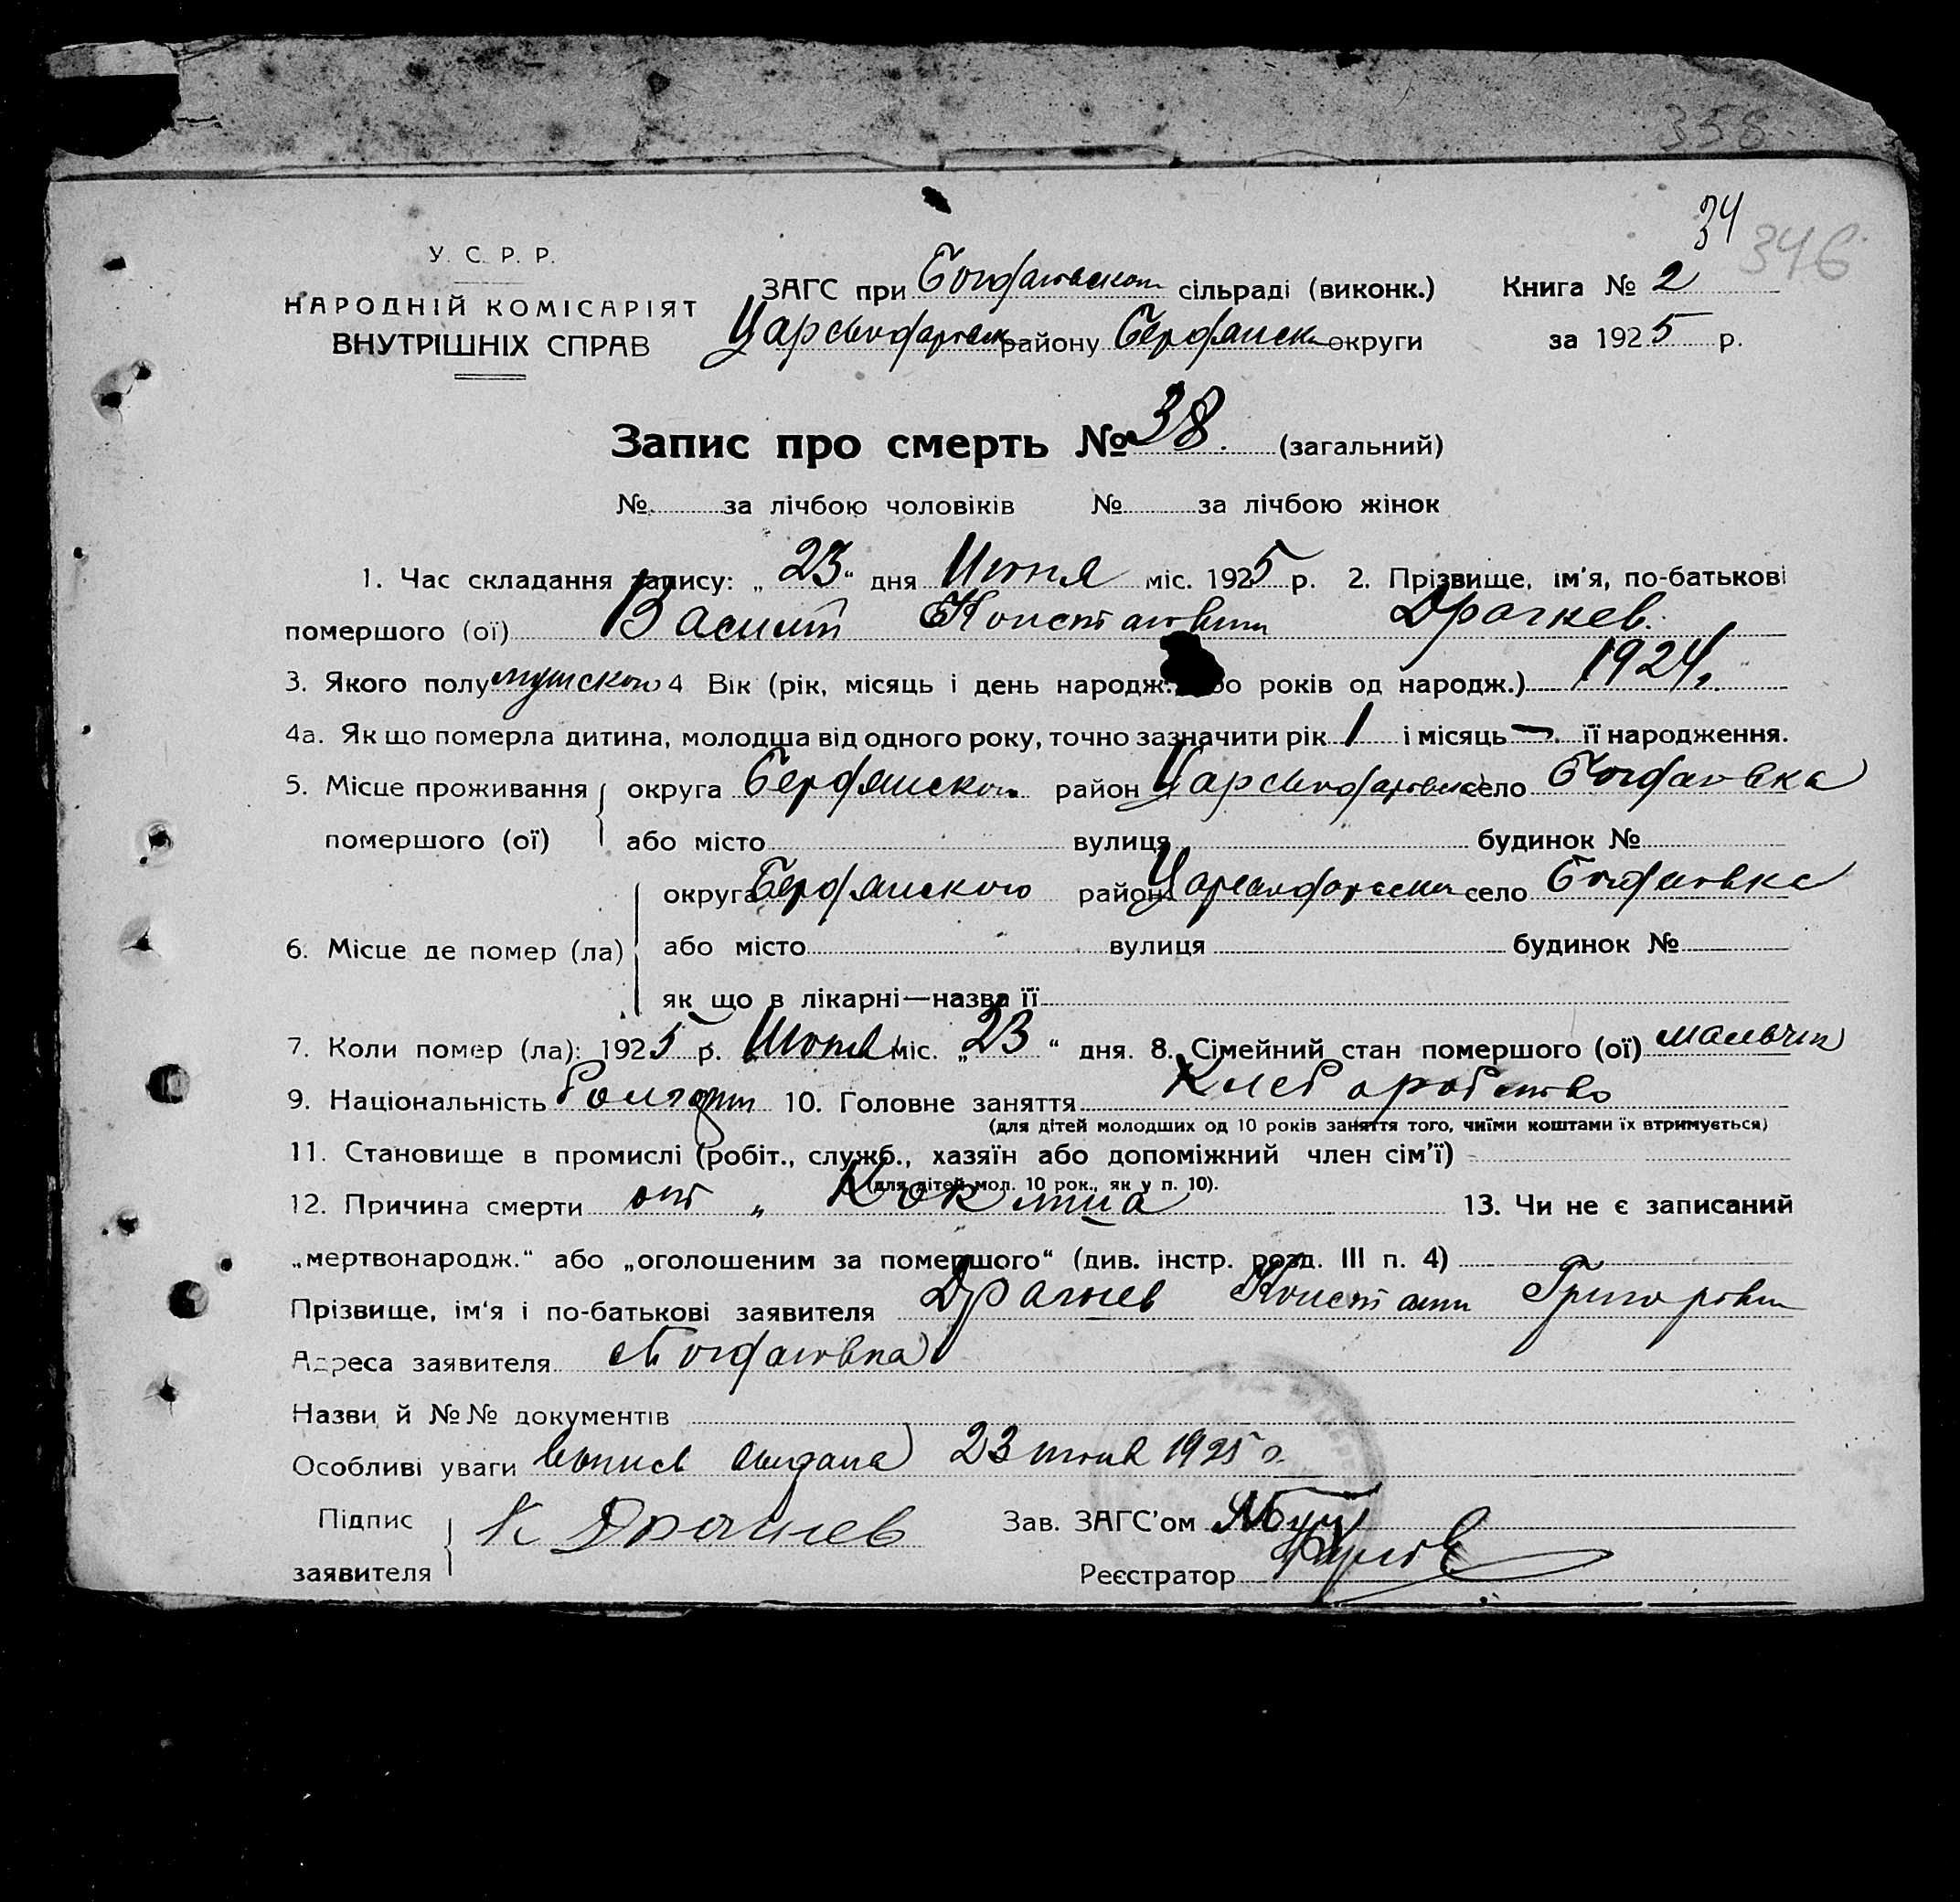 358
34 346
У. С. Р. Р.
НАРОДНІЙ КОМІСАРІЯТ
ВНУТРІШНІХ СПРАВ
ЗАГС при Богдановском сільраді (виконк.) Книга № 2
району Бердянск округи за 1925 р.
Запис про смерть № 38. (загальний)
№ за лічбою чоловіків № за лічбою жінок
1. Час складання запису: „ 23 “ дня Июня міс. 1925 р. 2. Прізвище, ім'я, по-батькові
помершого (ої) Василий Драгнев.
3. Якого полу мужского 4 Вік (рік, місяць і день народж. або років од народж.) 1924.
4а. Як що померла дитина, молодша від одного року, точно зазначити рік 1 і місяць — її народження.
5. Місце проживання округа район село Богдановка
помершого (ої) або місто вулиця будинок №
округа Бердянского район село Богдановка
6. Місце де помер (ла) або місто вулиця будинок №
як що в лікарні—назва її
7. Коли помер (ла): 1925 р. Июня міс. „ 23 “ дня. 8. Сімейний стан помершого (ої) мальчик
9. Національність 10. Головне заняття Хлеборобство
(для дітей молодших од 10 років заняття того, чиїми коштами їх втримується)
11. Становище в промислі (робіт., служб., хазяїн або допоміжний член сім'ї)
(для дітей мол. 10 рок., як у п. 10).
12. Причина смерти от „ Коклюша 13. Чи не є записаний
„мертвонародж.“ або „оголошеним за помершого“ (див. інстр. розд. III п. 4)
Прізвище, ім'я і по-батькові заявителя Драгнев Констант
Адреса заявителя Богдановка
Назви й №№ документів
Особливі уваги выпись выдана 23 июня 1925 г.
Підпис К Драгнев Зав. ЗАГС'ом
заявителя Реєстратор